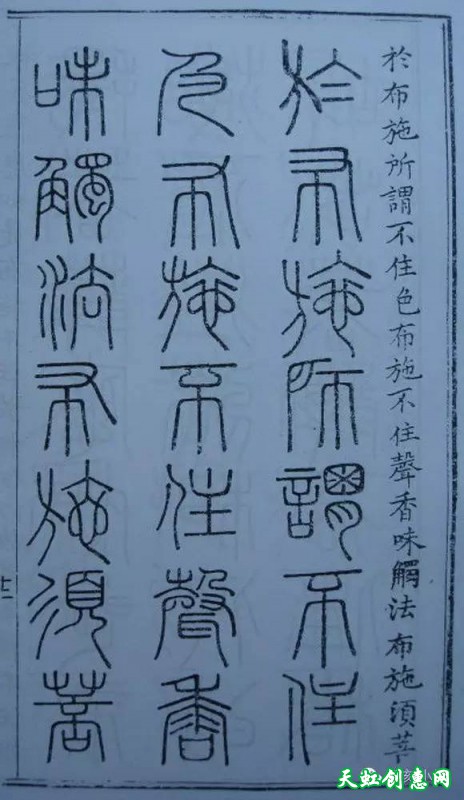 於布施所謂不住色布施不住聲香味觸法布施須菩
於布施所謂不住
色布施不住聲香
味觸法布施須菩
天虹创惠网